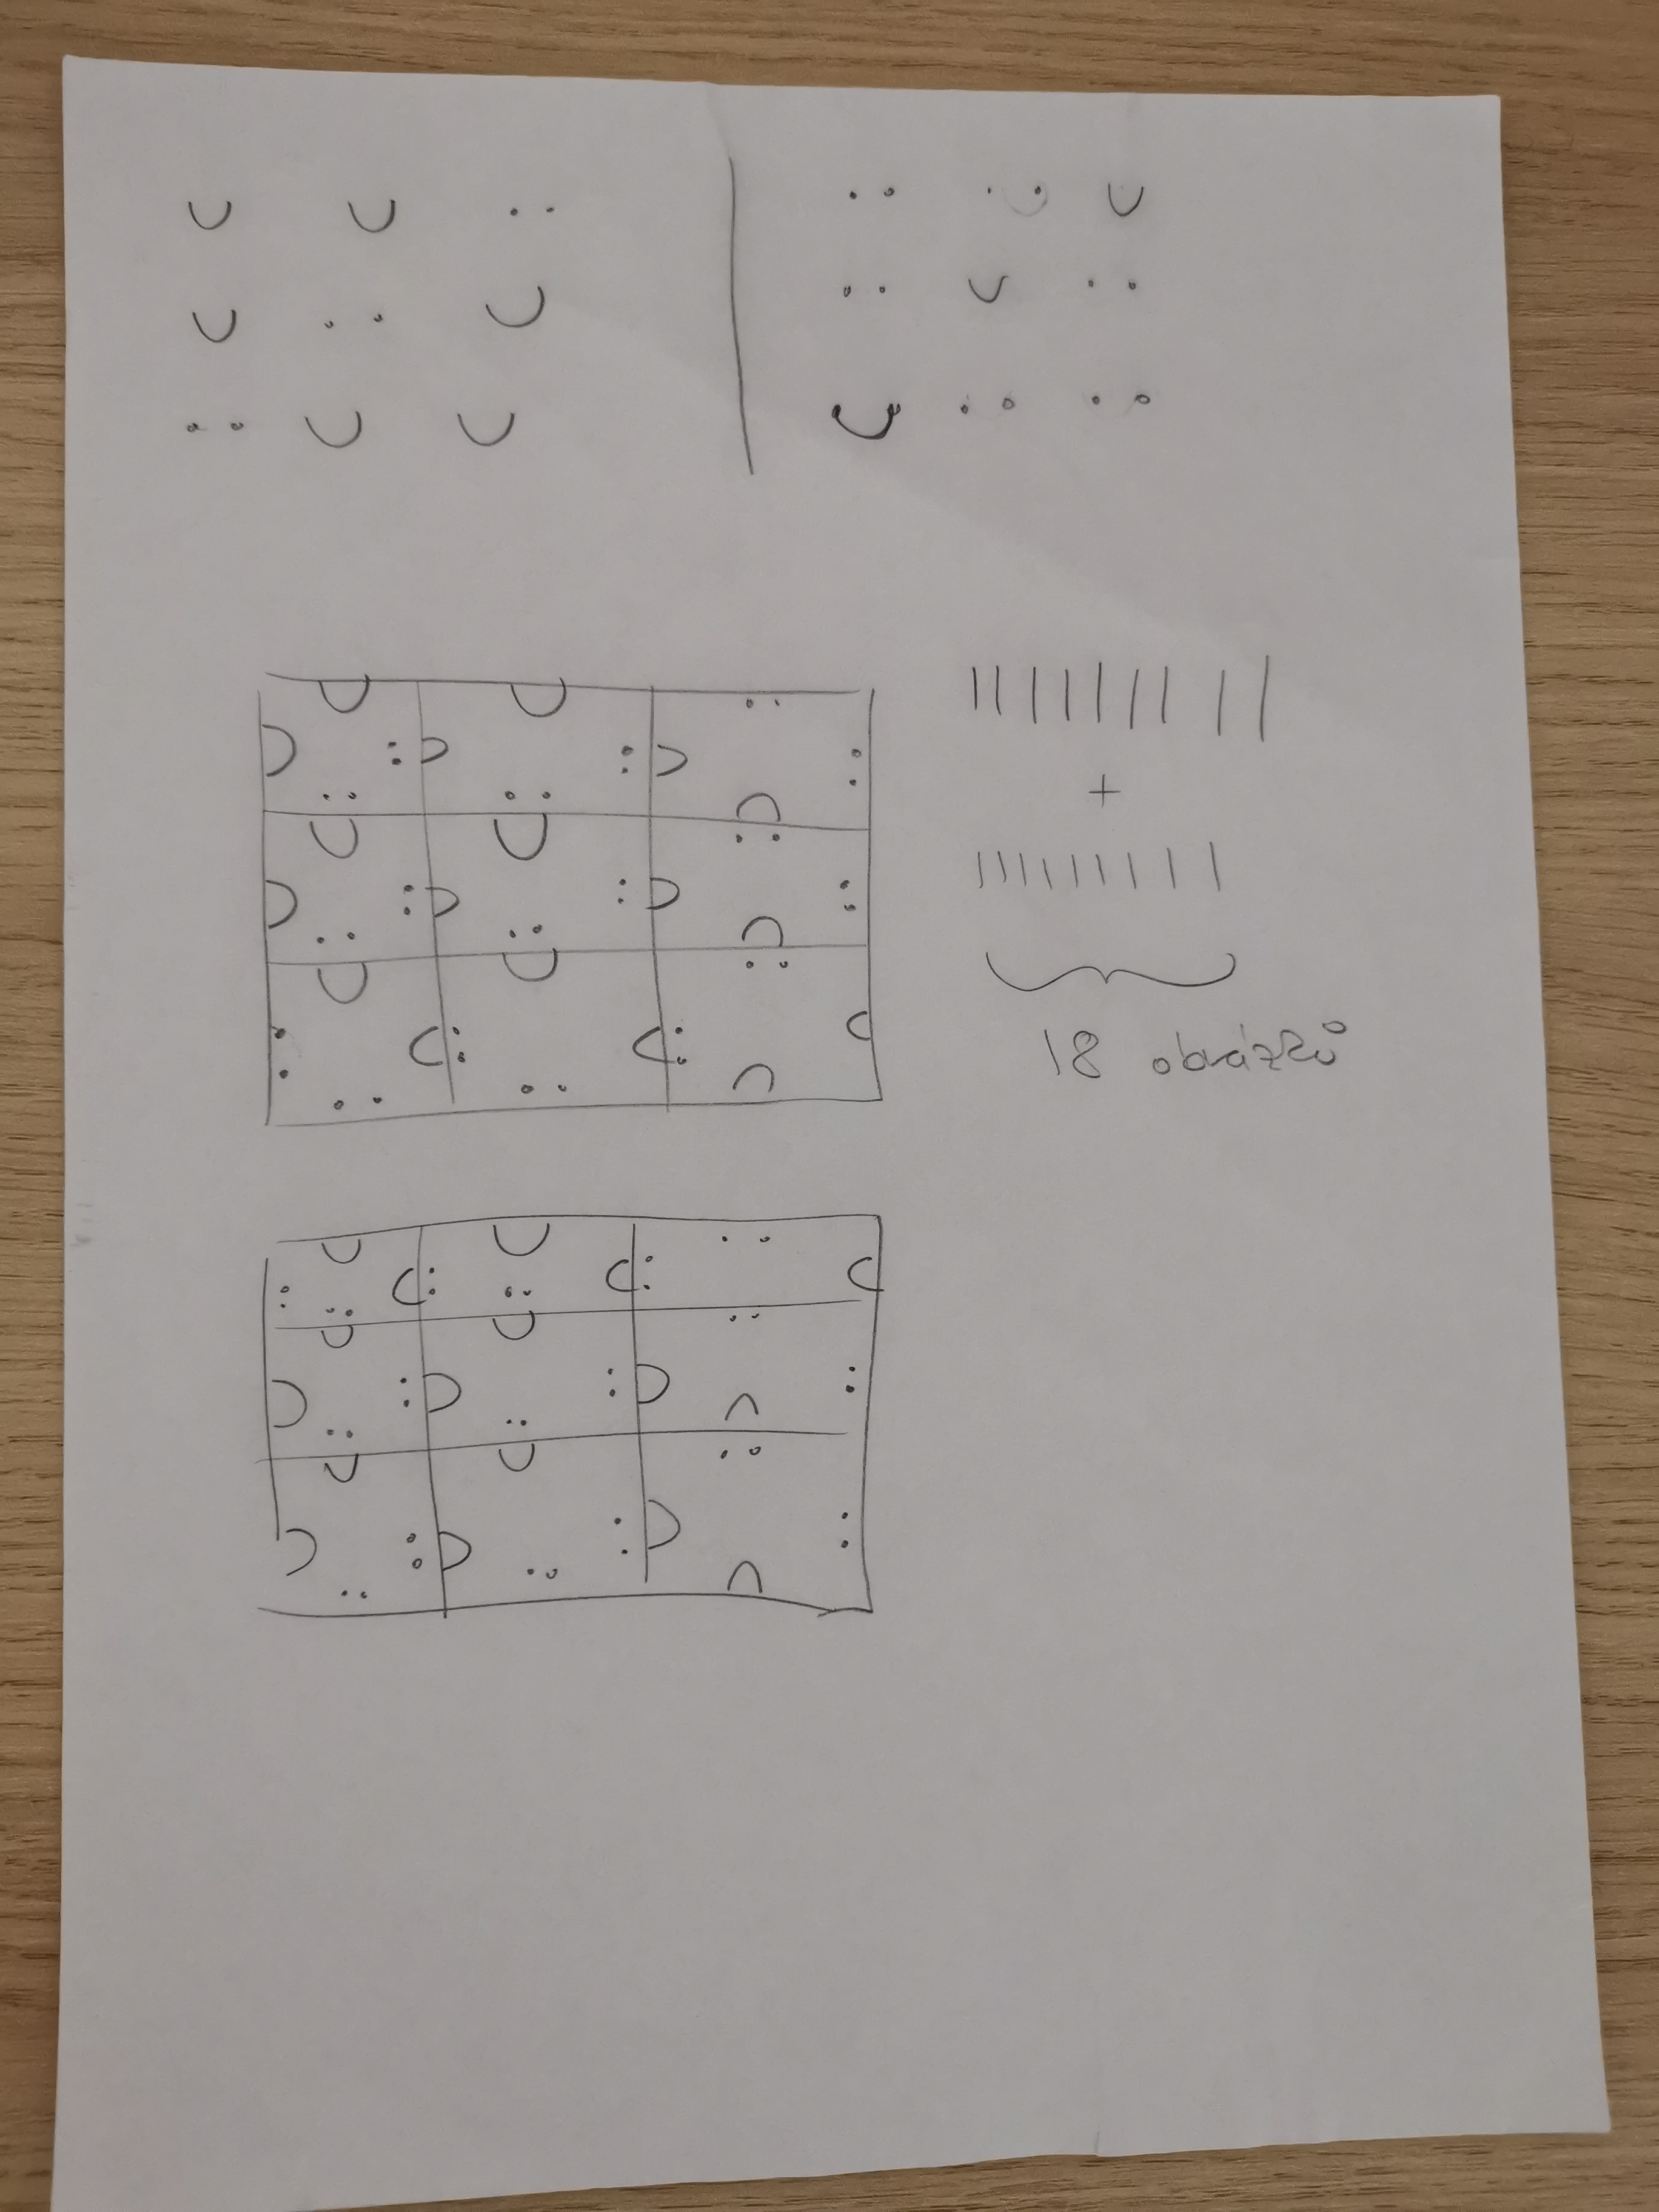 +
18 obrázků